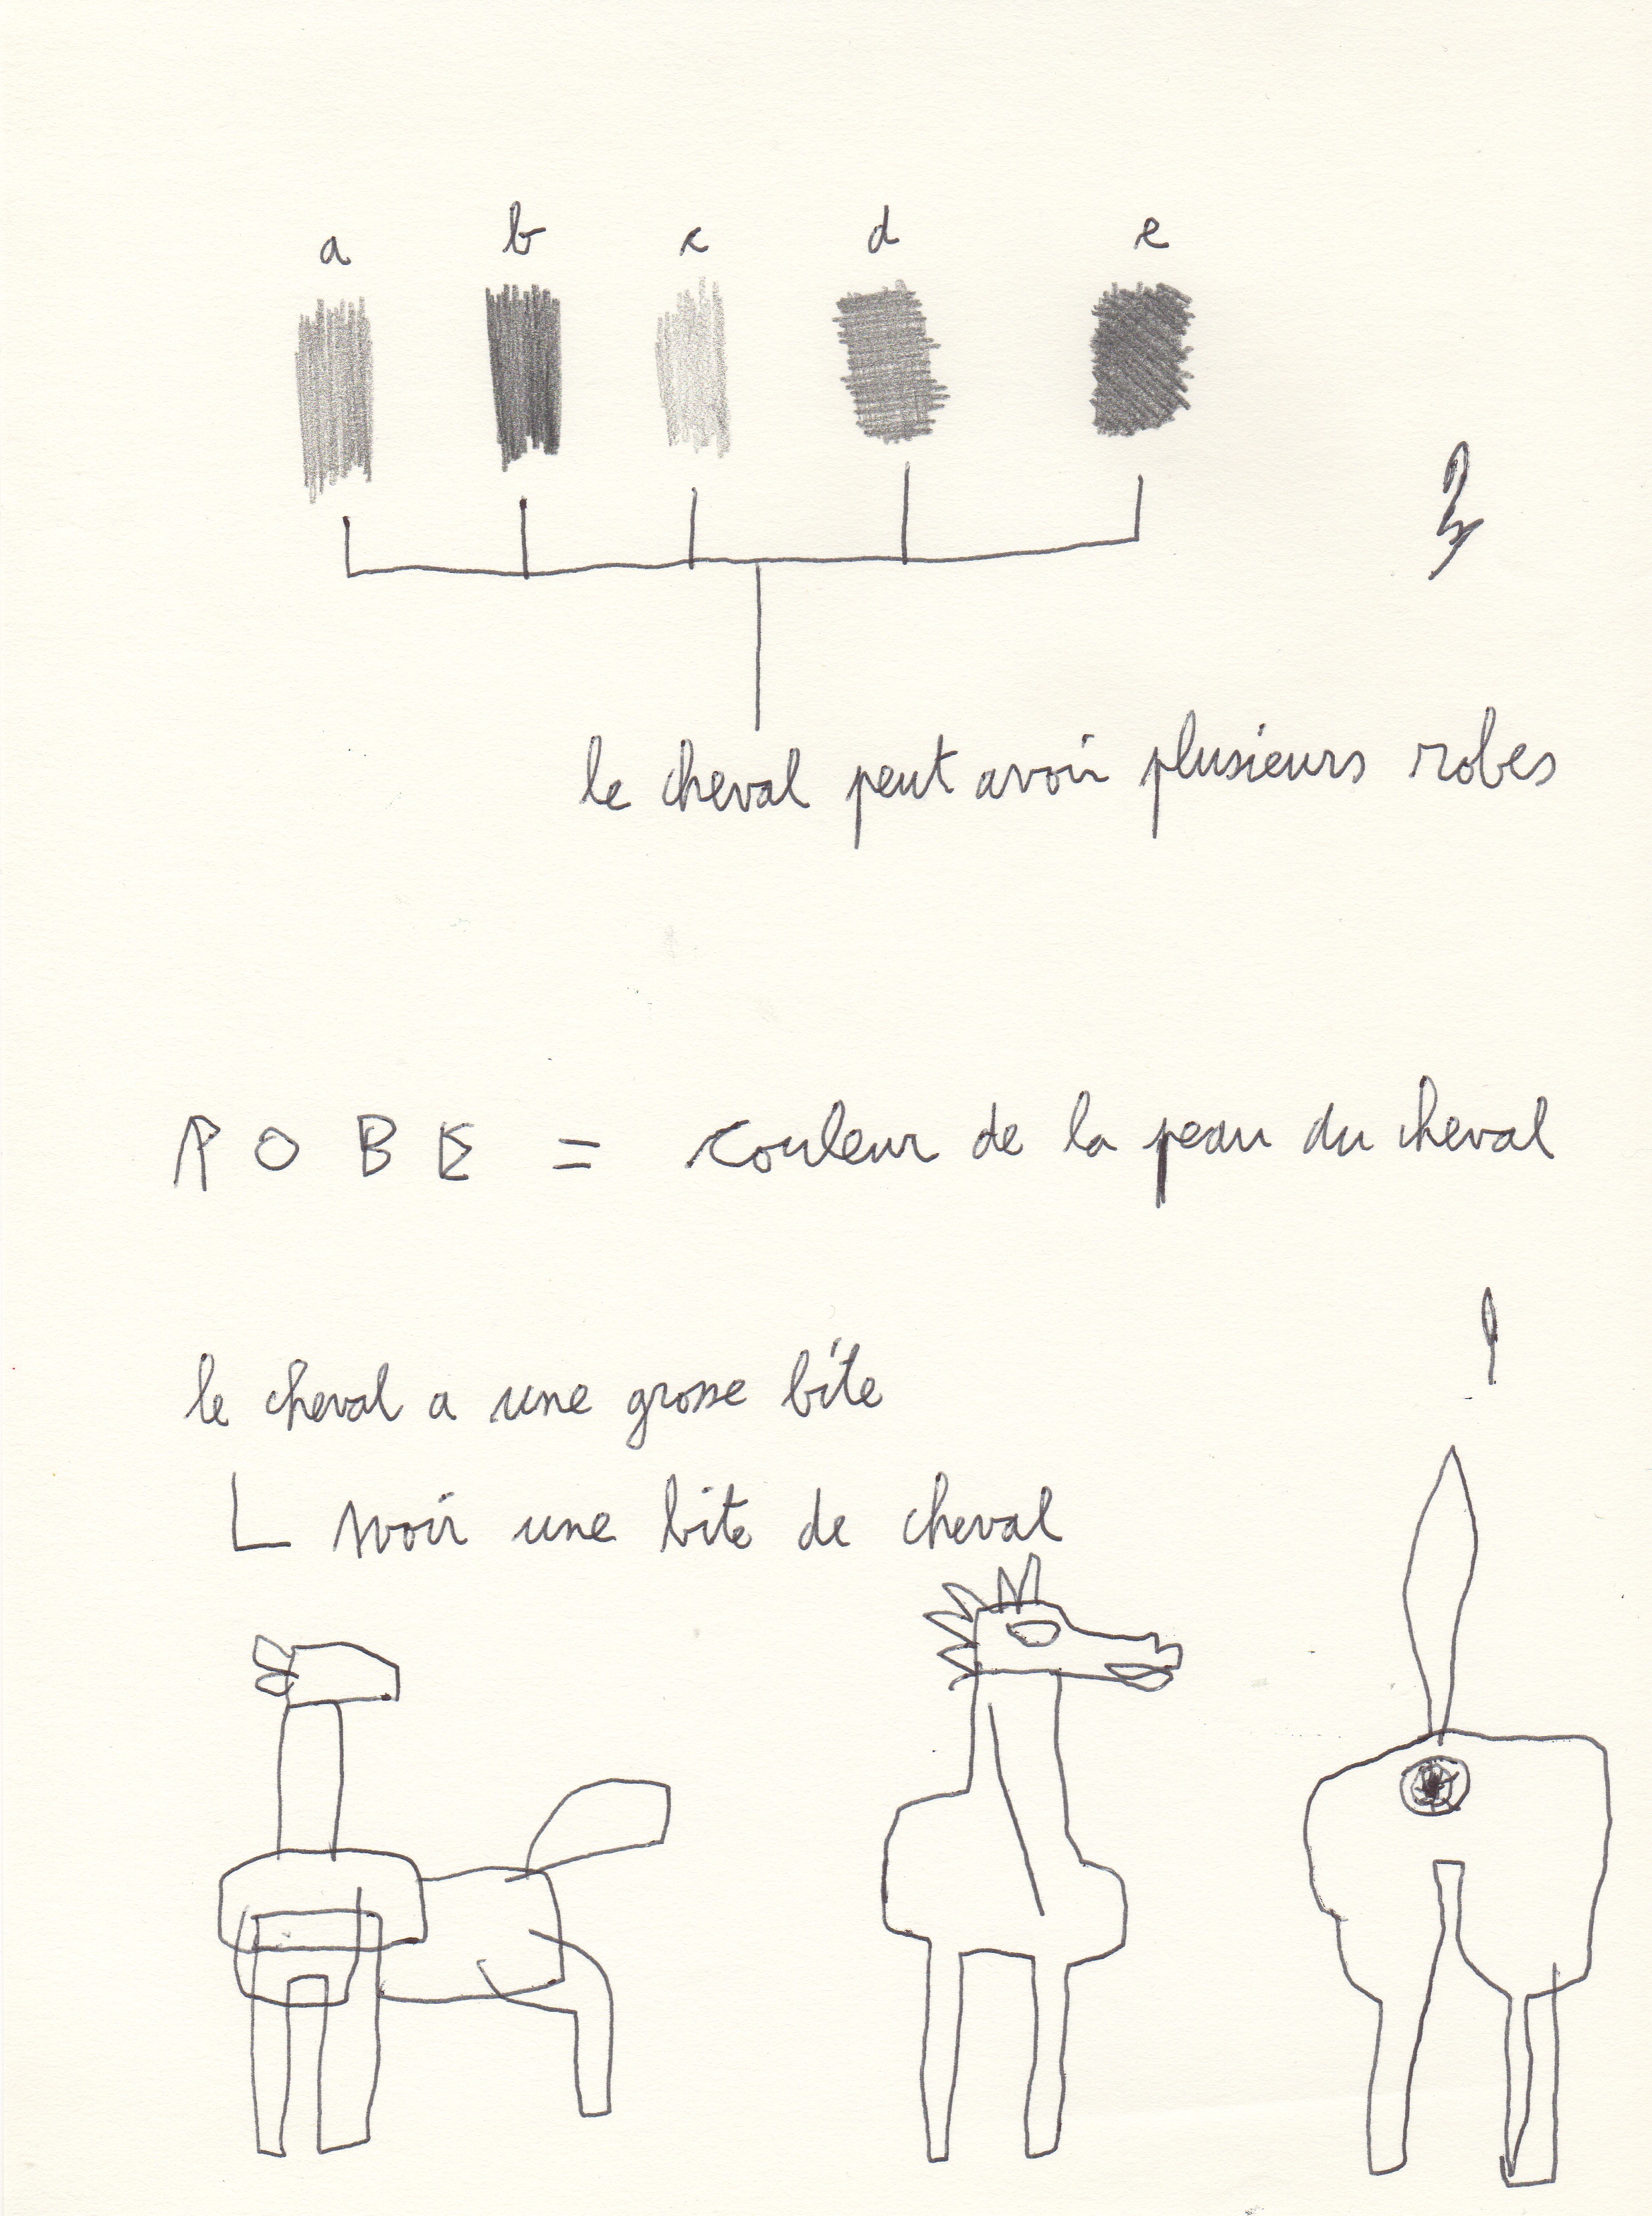 a b c d e
le cheval peut avoir plusieurs robes
ROBE = couleur de la peau du cheval
le cheval a une grosse bite
avoir une bite de cheval